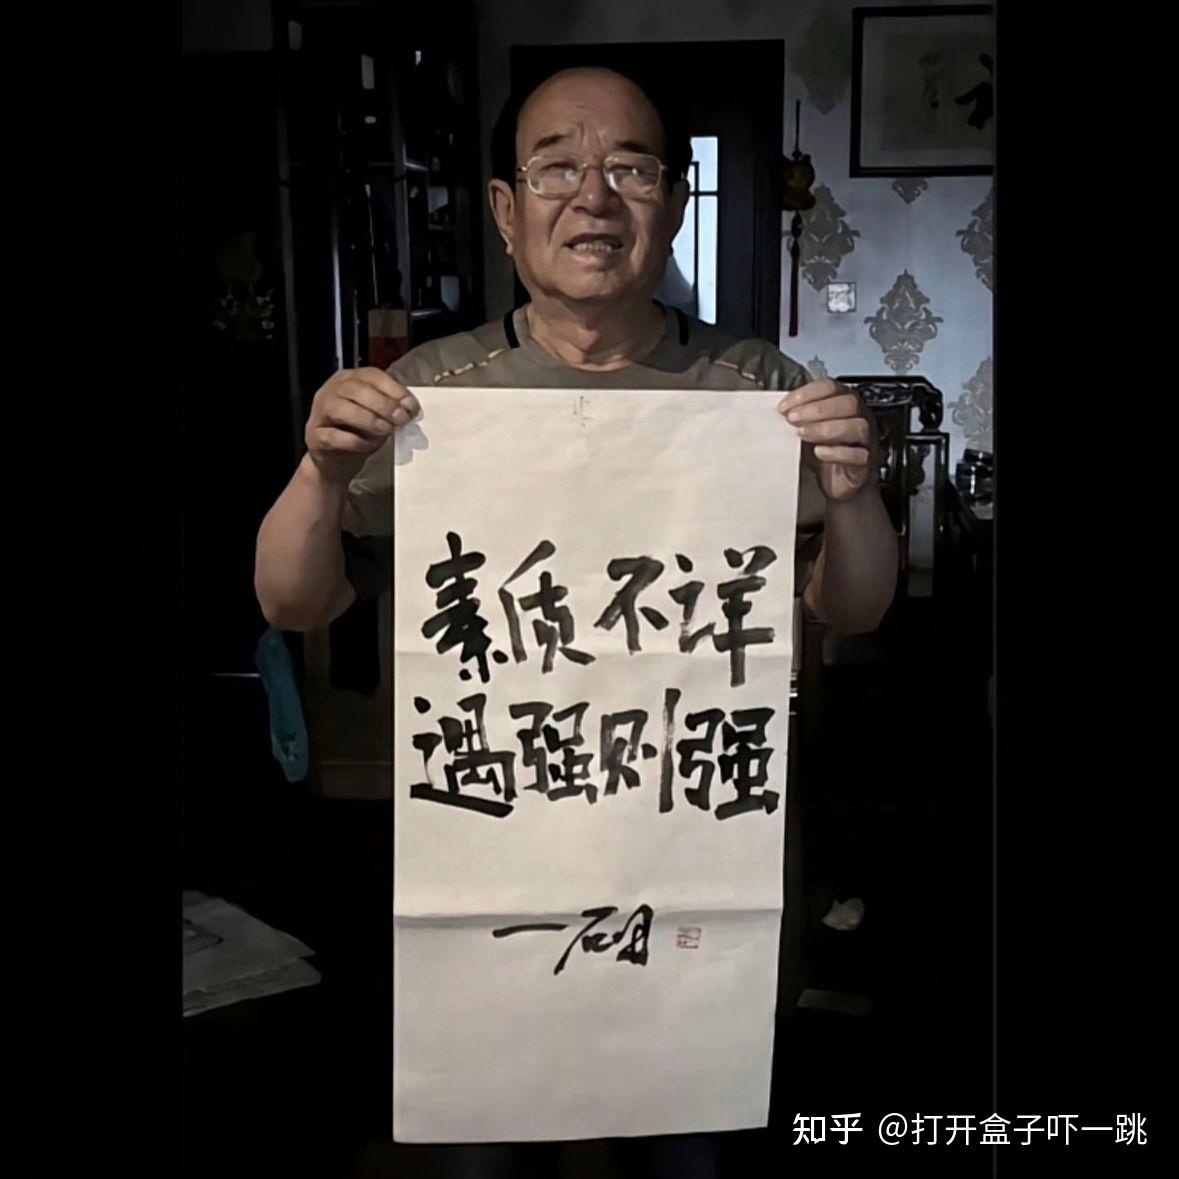 素质不详
遇强则强
一硯
知乎 @打开盒子吓一跳